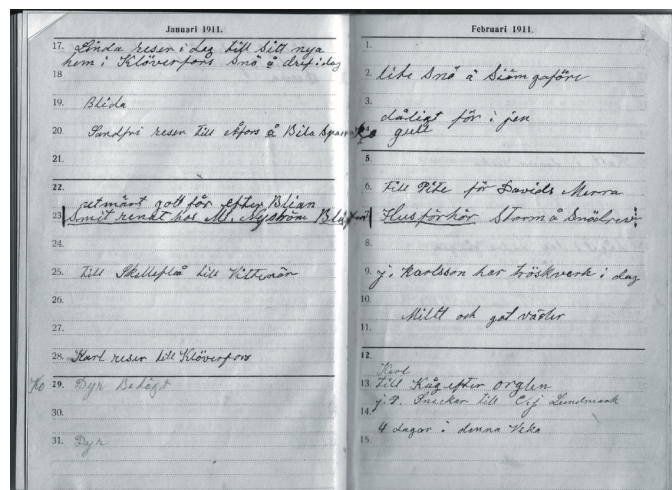 Januari 1911.
17. Linda reser i dag till sitt nya
hem i Klöverfors snö å dref i dag
18
19. Blida
20. Sandfri reser till Åfors å
21.
22.
utmärt gott för efter Blian
23. Smit renat hos M. Nyström
24.
25. till Skellefteå till
26.
27.
28. Karl reser till Klöverfors
Ko 29. Dyr Bedägt
30.
31. Dyr
Februari 1911.
1.
2. lite snö å
3.
dåligt för i jen
gull
5.
6. till Pite för Davids Merra
Husförhör Storm å
8.
9. j. Karlsson har tröskverk i dag
10.
Milt och got väder
11.
12.
Karl
13. till Kåg efter orglen
j. D. Snickar till Lundmark
14.
4 dagar i denna Veka
15.